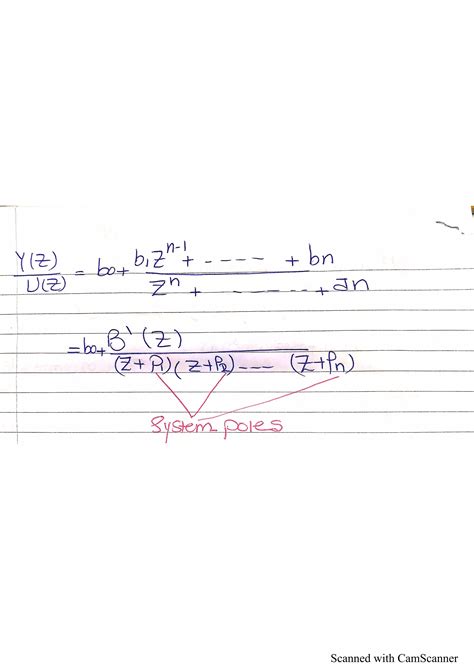 Y(Z)/U(Z) = bo + b₁Zⁿ⁻¹ + ---- + bn / Zⁿ + ------- + an
= bo + B'(Z) / (Z+P₁)(Z+P₂)---- (Z+Pn)
System poles
Scanned with CamScanner